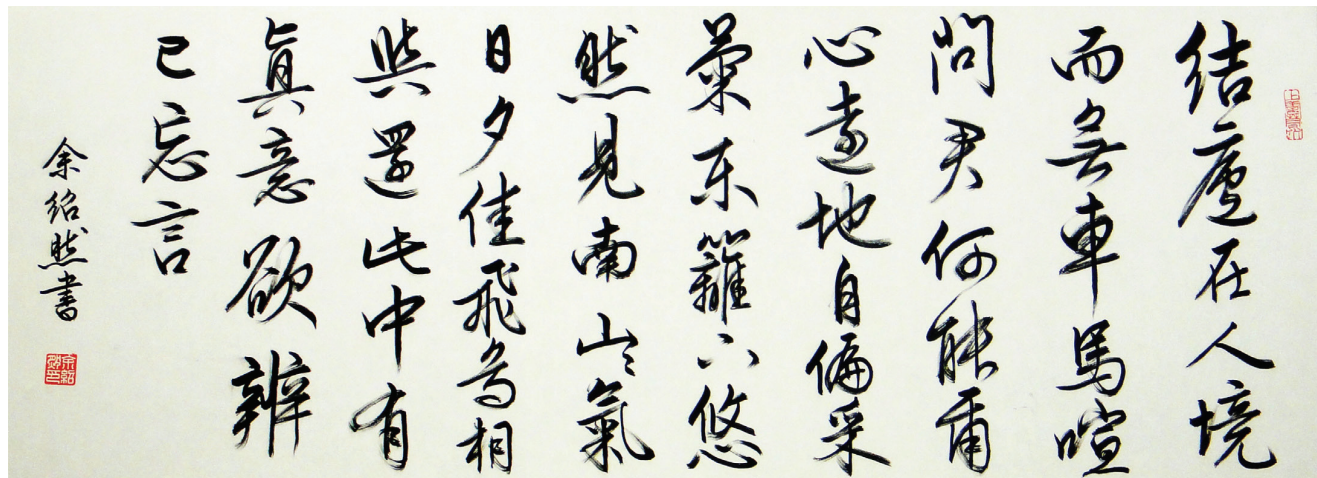 結廬在人境
而無車馬喧
問君何能爾
心遠地自偏采
菊東籬下悠
然見南山〻氣
日夕佳飛鳥相
與還此中有
眞意欲辨
已忘言
余紹然書